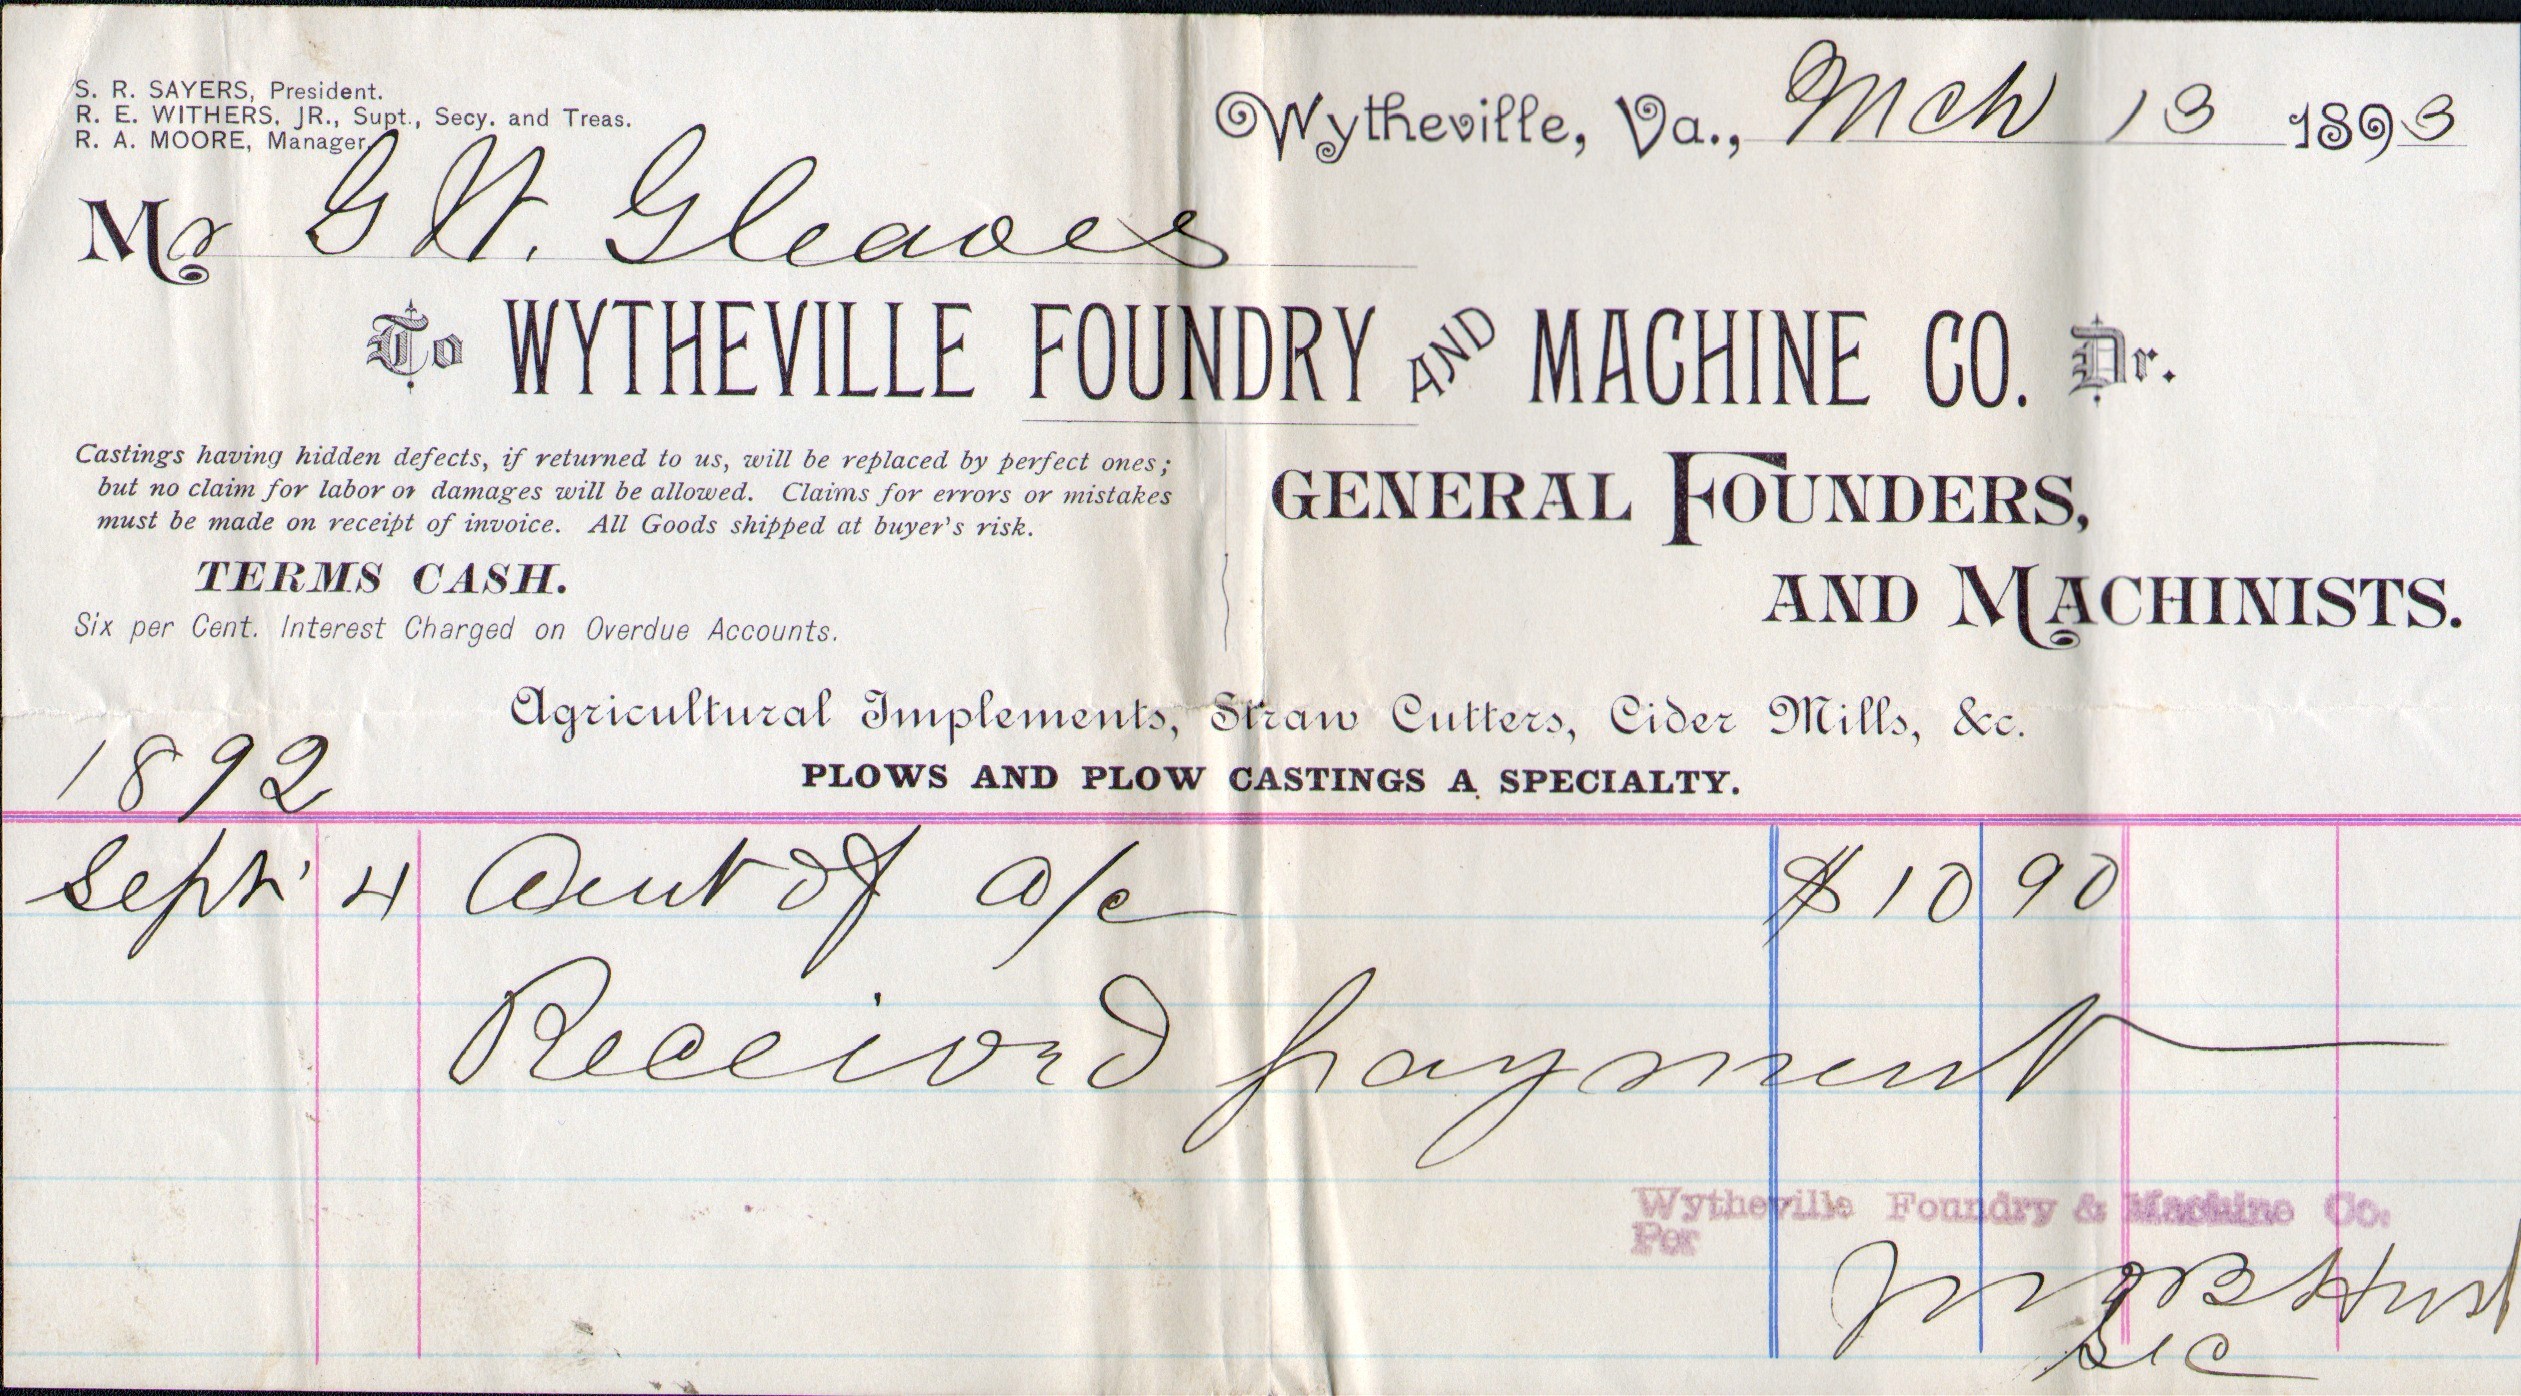 S. R. SAYERS, President.
R. E. WITHERS, JR., Supt., Secy. and Treas.
R. A. MOORE, Manager.
Wytheville, Va., Mch 13 1893
Mr G W. Gleaves
To WYTHEVILLE FOUNDRY AND MACHINE CO. Dr.
Castings having hidden defects, if returned to us, will be replaced by perfect ones;
but no claim for labor or damages will be allowed. Claims for errors or mistakes
must be made on receipt of invoice. All Goods shipped at buyer's risk.
TERMS CASH.
Six per Cent. Interest Charged on Overdue Accounts.
GENERAL FOUNDERS,
AND MACHINISTS.
Agricultural Implements, Straw Cutters, Cider Mills, &c.
PLOWS AND PLOW CASTINGS A SPECIALTY.
1892
Sept 4 Amt of a/c $10 90
Received payment
Wytheville Foundry & Machine Co.
Per
Sec